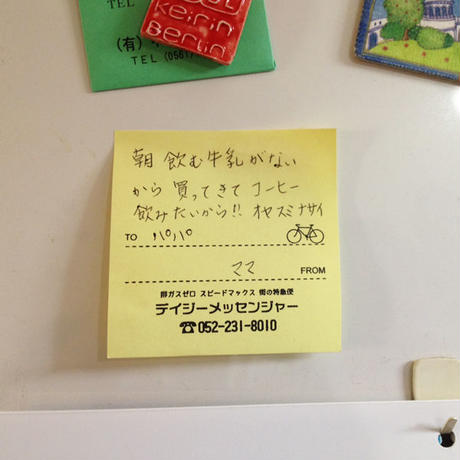 TEL
(有)
TEL (0561)
keirin
Berlin
朝 飲む牛乳がない
から 買ってきて コーヒー
飲みたいから!! オヤスミナサイ
TO パパ
ママ FROM
排ガスゼロ スピードマックス 街の特急便
デイジーメッセンジャー
☎052-231-8010